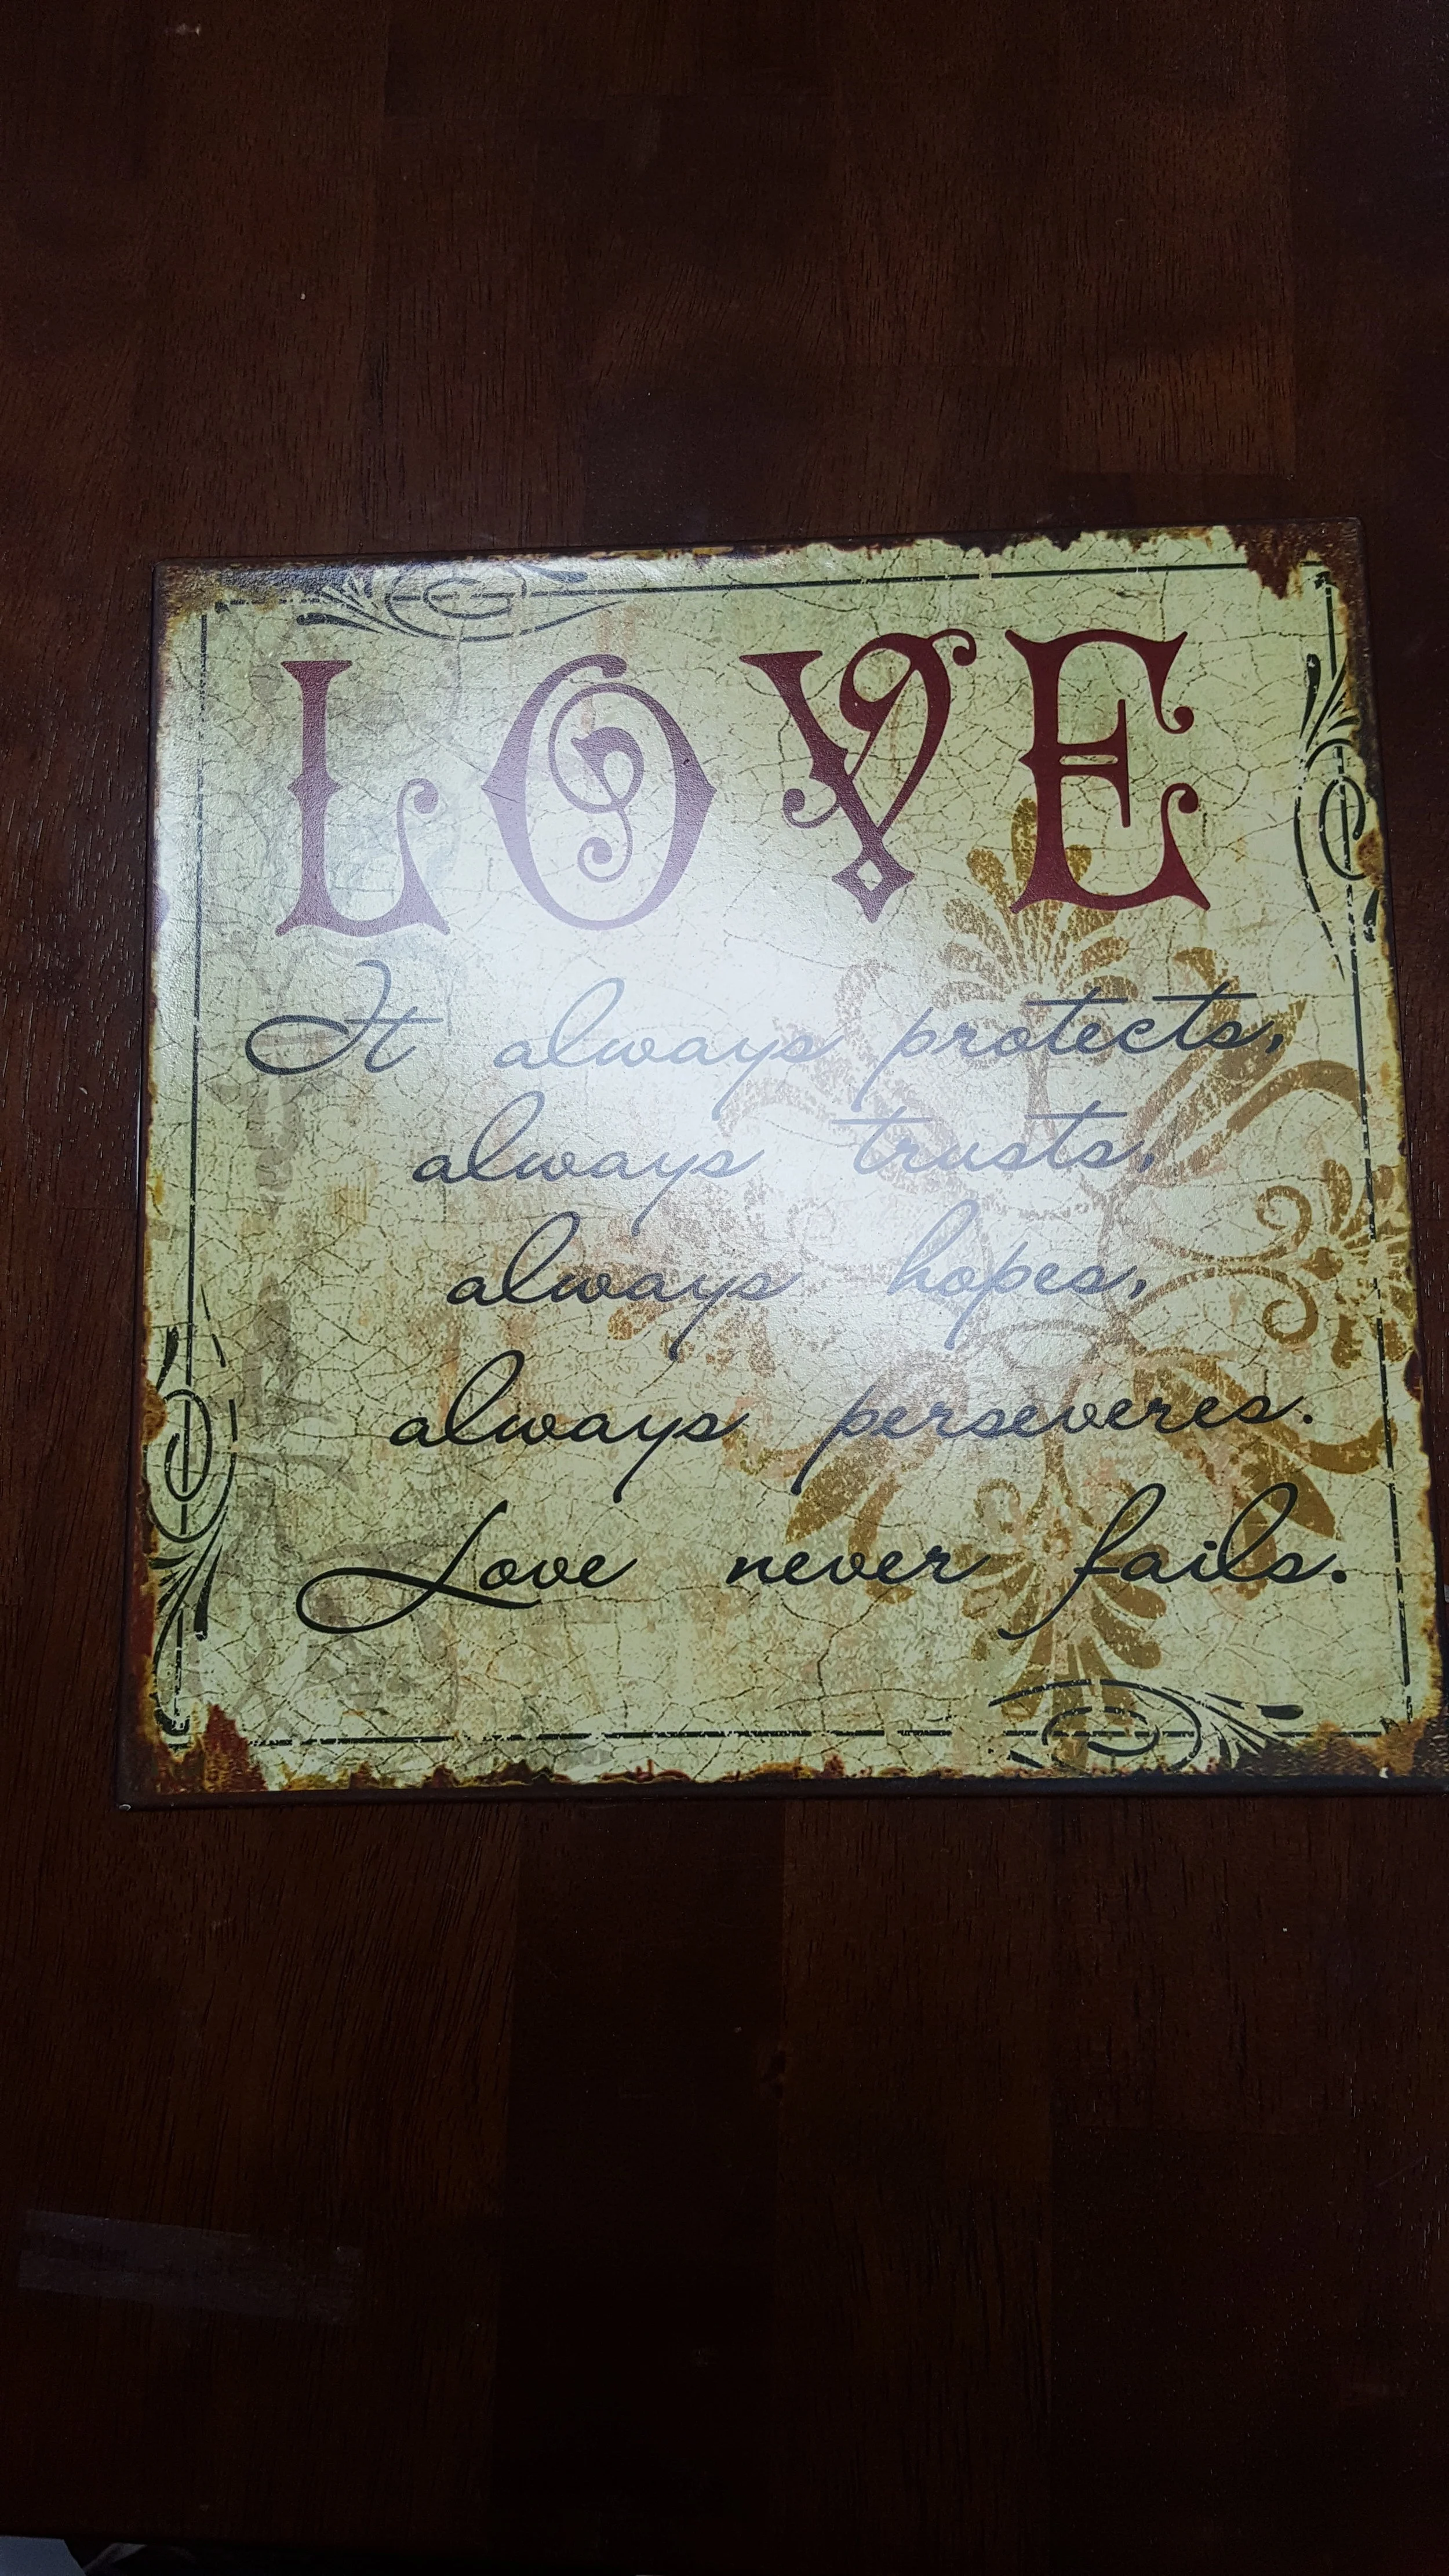 LOVE
It always protects,
always trusts,
always hopes,
always perseveres.
Love never fails.